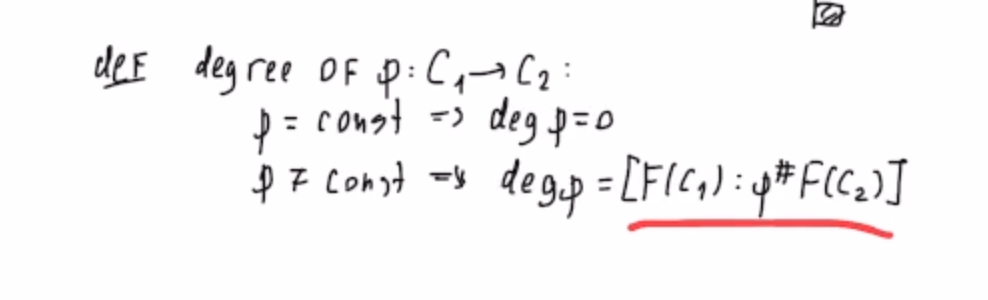 def degree OF φ: C₁→C₂:
φ = const => deg φ=0
φ ≠ const => deg φ = [F(C₁) : φ^# F(C₂)]